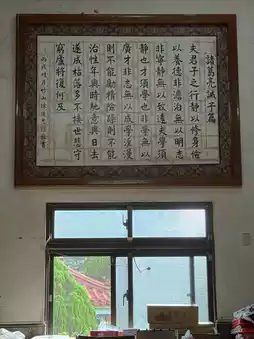 諸葛亮誡子篇
夫君子之行靜以修身儉
以養德非澹泊無以明志
非寧靜無以致遠夫學須
靜也才須學也非學無以
廣才非志無以成學淫漫
則不能勵精險躁則不能
治性年與時馳意與日去
遂成枯落多不接世悲守
窮廬將復何及